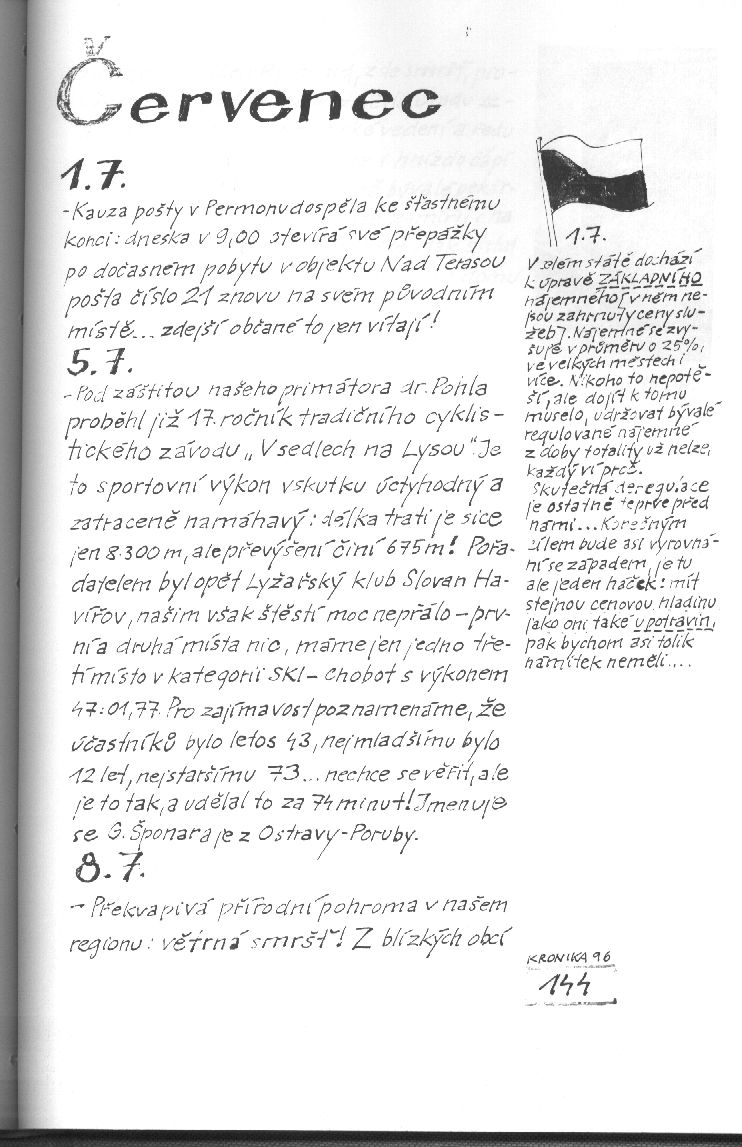 Červenec
1.7.
- Kauza pošty v Permonu dospěla ke šťastnému
konci: dneska v 9,00 otevírá své přepážky
po dočasném pobytu v objektu Nad Terasou
pošta číslo 21 znovu na svém původním
místě... zdejší občané to jen vítají!
5.7.
- Pod záštitou našeho primátora dr. Pohla
proběhl již 17. ročník tradičního cyklis-
tického závodu „V sedlech na Lysou“. Je
to sportovní výkon vskutku úctyhodný a
zatraceně namáhavý: délka trati je sice
jen 8.300 m, ale převýšení činí 675 m! Pořa-
datelem byl opět Lyžařský klub Slovan Ha-
vířov, našim však štěstí moc nepřálo - prv-
ní a druhá místa nic, máme jen jedno tře-
tí místo v kategorii SKI - Chobot s výkonem
47:01,77. Pro zajímavost poznamenáme, že
účastníků bylo letos 43, nejmladšímu bylo
12 let, nejstaršímu 73... nechce se věřit, ale
je to tak, a udělal to za 74 minut! Jmenuje
se G. Šponar a je z Ostravy-Poruby.
8.7.
- Překvapivá přírodní pohroma v našem
regionu: větrná smršť! Z blízkých obcí
1.7.
V celém státě dochází
k úpravě ZÁKLADNÍHO
nájemného [v něm ne-
jsou zahrnuty ceny slu-
žeb]. Nájemné se zvy-
šuje v průměru o 25%,
ve velkých městech i
více. Nikoho to nepotě-
ší, ale dojít k tomu
muselo, udržovat bývalé
regulované nájemné
z doby totality už nelze,
každý ví proč.
Skutečná deregulace
je ostatně teprve před
námi... Konečným
cílem bude asi vyrovná-
ní se západem, je tu
ale jeden háček: mít
stejnou cenovou hladinu
jako oni také u potravin,
pak bychom asi tolik
námitek neměli....
KRONIKA 96
144